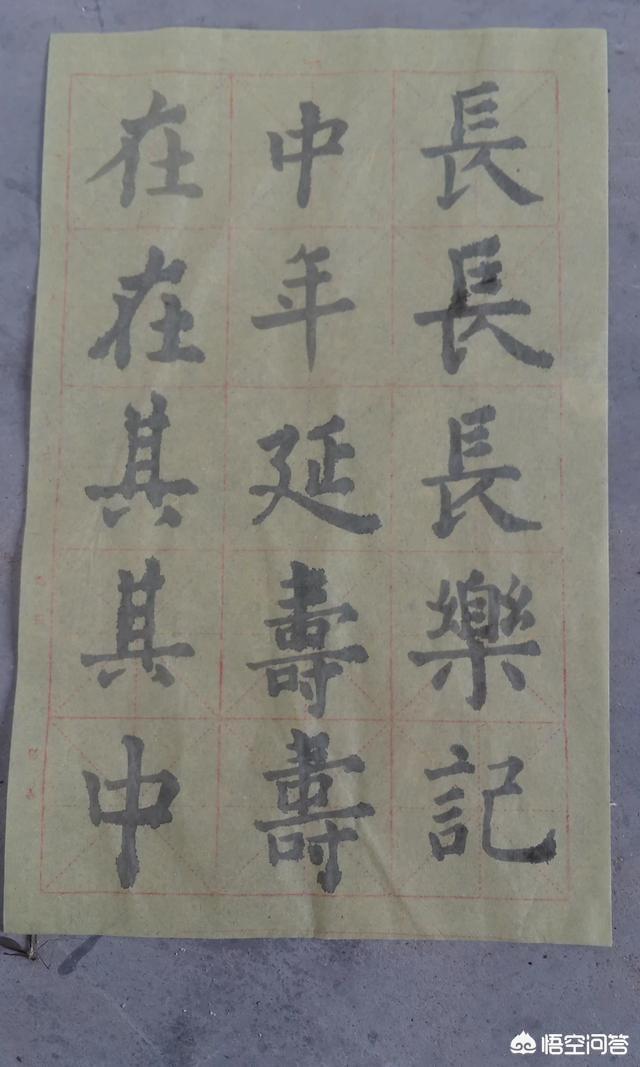 長長長樂記
中年延壽壽
在在其其中
悟空问答